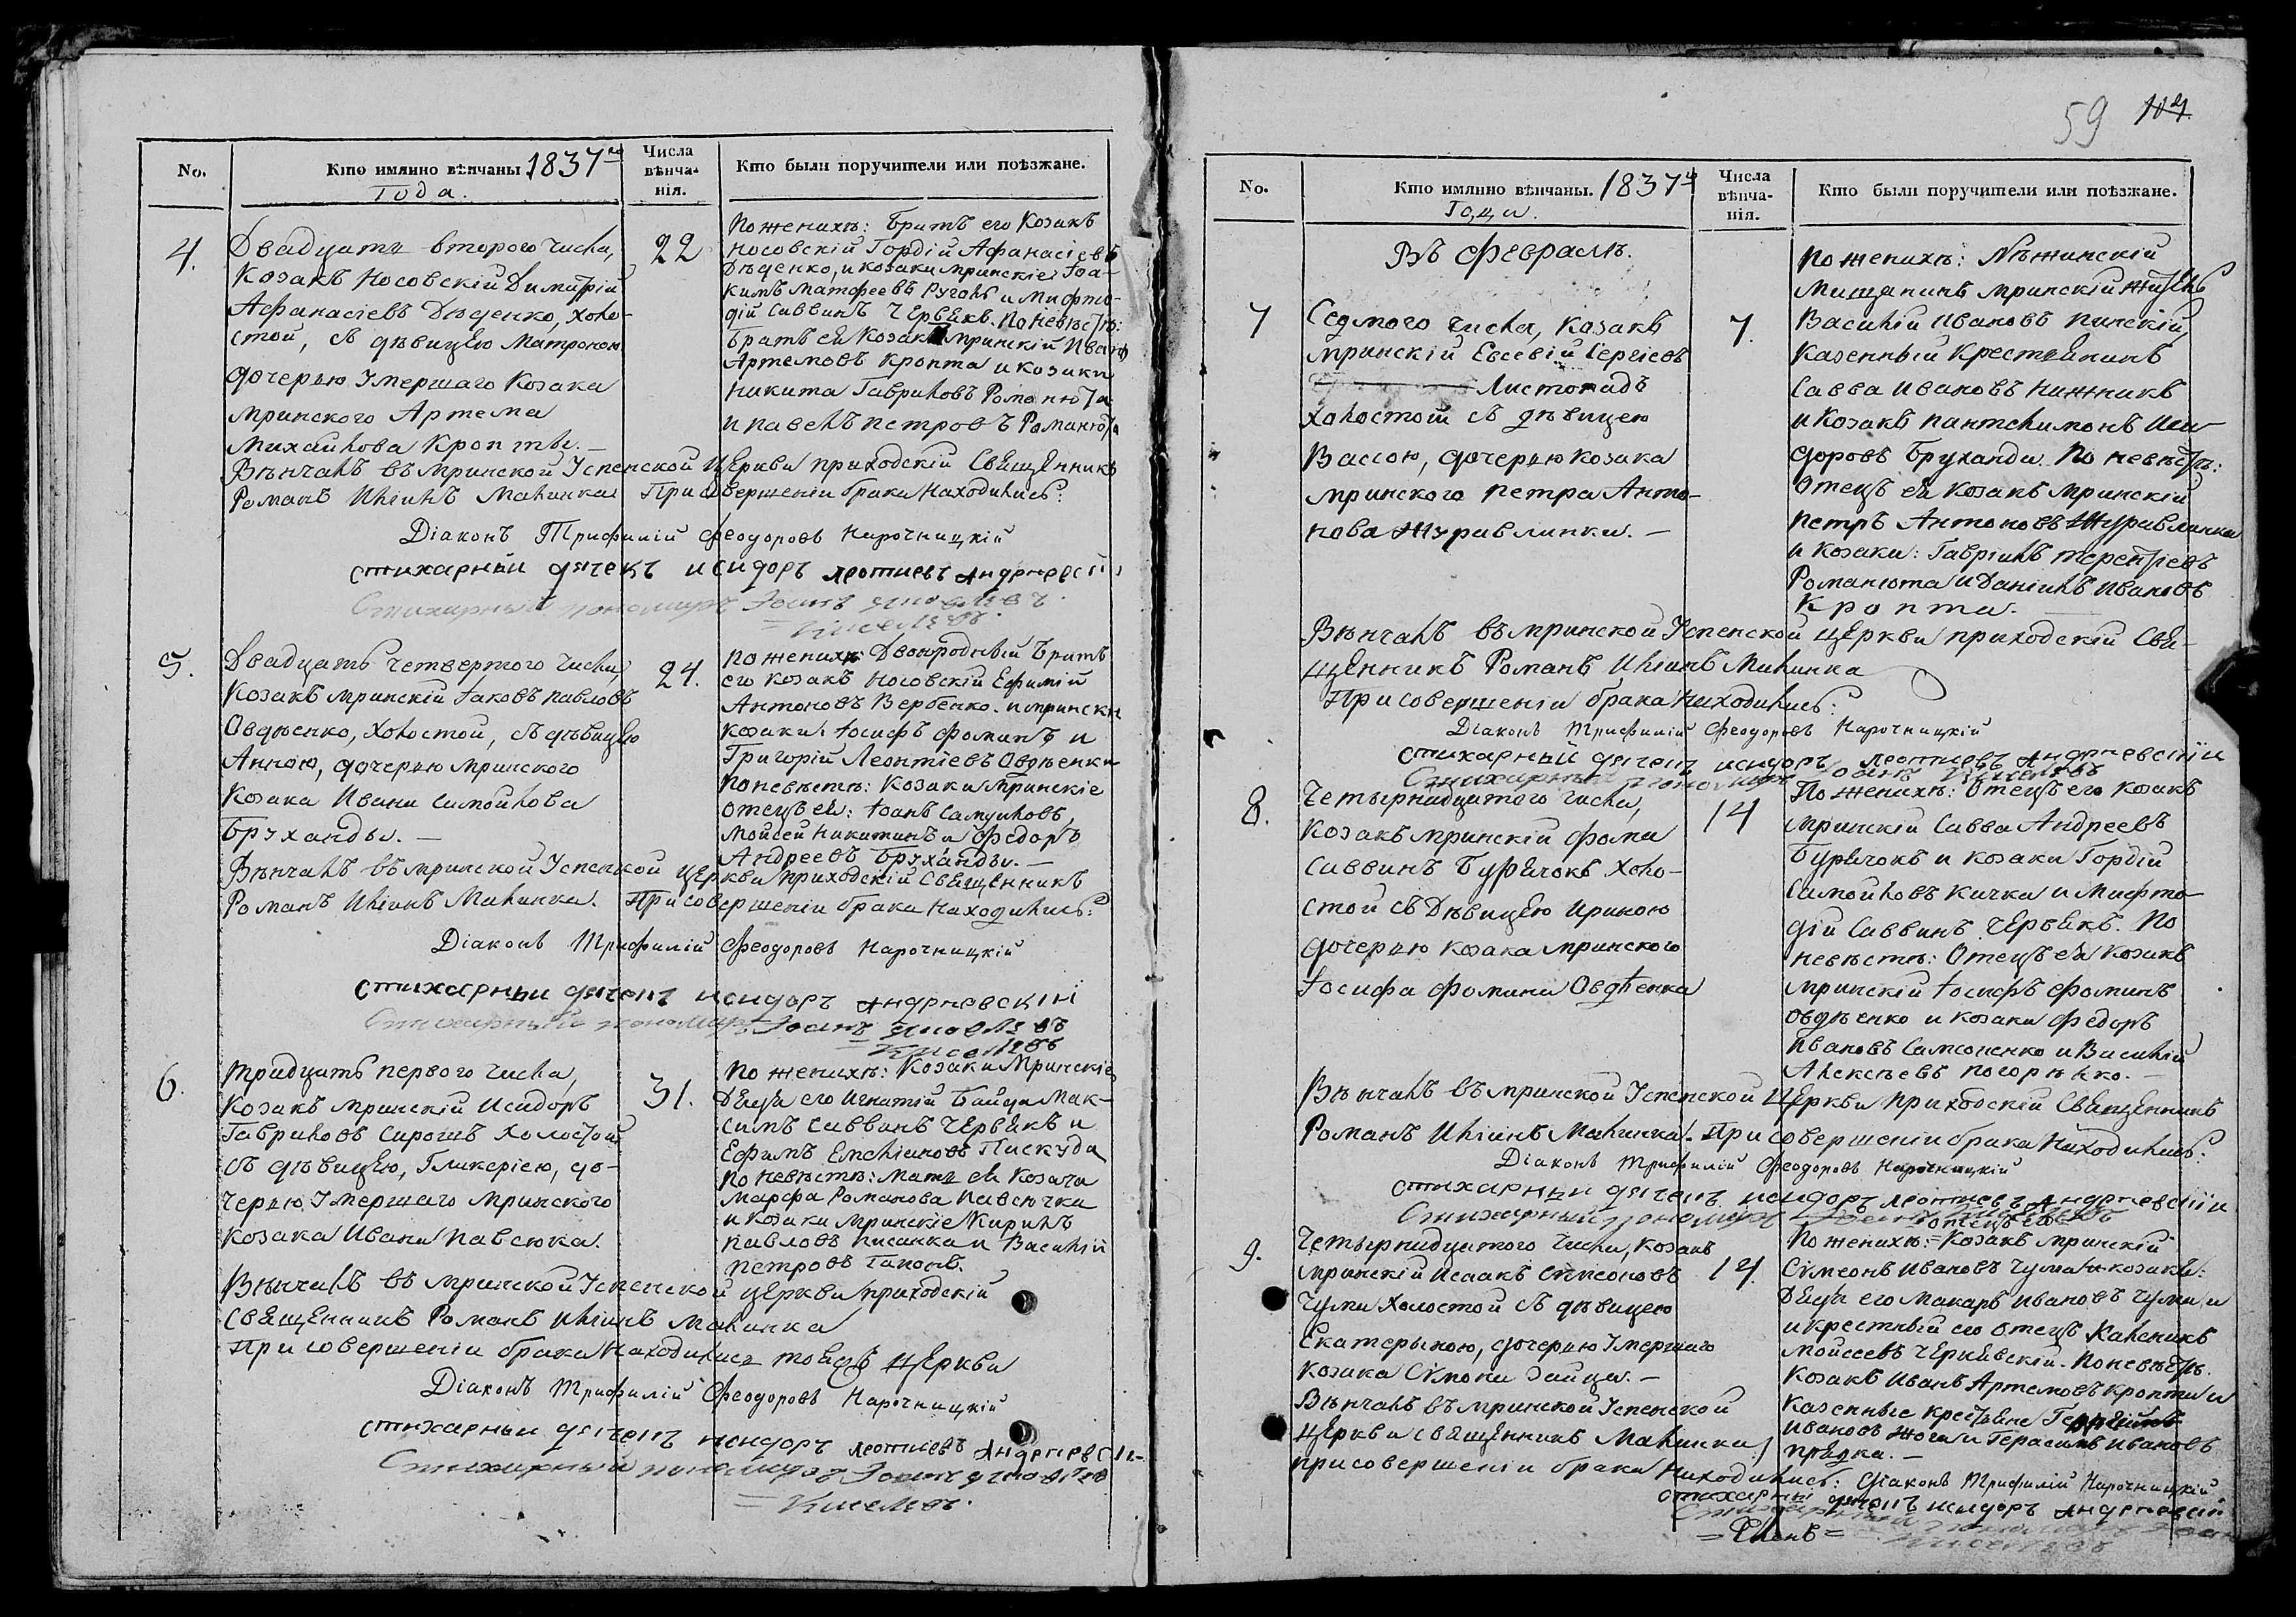 No.
Кто имянно вѣнчаны 1837го
Года.
Числа
вѣнча-
нія.
Кто были поручители или поѣзжане.
4.
Двадцать второго числа,
Козакъ Носовскій Димитрій
Афанасіевъ Дѣденко, холо-
стой, съ дѣвицею Матроною
дочерью умершаго Козака
мринского Артема
Михайлова Кропты. —
22
По женихѣ: Братъ его Козакъ
носовскій Гордій Афанасіевъ
Дѣденко, и козаки мринскіе: Іоа-
кимъ Матфеевъ Руголь и Мифто-
дій Саввинъ Червякъ. По невѣстѣ:
Братъ ея Козакъ мринскій Иванъ
Артемовъ Кропта и козаки
Никита Гавриловъ Романюта
и Павелъ Петровъ Романюта
Вѣнчалъ въ мринской Успенской Церкви приходскій Священникъ
Романъ Иліинъ Малинка. При совершеніи брака находились:
Діаконъ Трифилій Феодоровъ Нарочницкій
стихарный дячекъ исидоръ леотиевъ андрневскій
Стихарный пономарь Іоанъ яковлевъ
= Киселевъ.
5.
Двадцать четвертого числа,
Козакъ мринскій Іаковъ Павловъ
Овдѣенко, холостой, съ дѣвицею
Анною, дочерью мринского
Козака Ивана Самойлова
Бруханды. —
24.
По женихѣ: Двоюродный братъ
его козакъ носовскій Ефимій
Антоновъ Вербенко. и мрински
козаки: Іосифъ Фоминъ и
Григорій Леонтіевъ Овдѣенки
По невѣстѣ: Козаки Мринскіе
отецъ ея: Іоанъ Самуиловъ,
Мойсей Никитинъ и Федоръ
Андреевъ Бруханды. —
Вѣнчалъ въ мринской Успенской церкви приходскій Священникъ
Романъ Иліинъ Малинка. При совершеніи брака находились:
Діаконъ Трифилій Феодоровъ Нарочницкій
стихарный дячекъ исидоръ андрневскій
Стихарный пономарь Іоанъ яковлевъ
= Киселевъ
6.
Тридцать первого числа,
Козакъ мринскій Исидоръ
Гавриловъ Сирошъ холостой
съ дѣвицею, Гликеріею, до-
черью умершаго мринского
козака Ивана Павсюка.
31.
По женихѣ: Козаки Мринскіе
Дядя его Игнатій Байда Мак-
симъ Саввинъ Червякъ и
Ефимъ Емеліановъ Пискуда
По невѣстѣ: Мать ея Козачка
Марфа Романова Павсючка
и козаки мринскіе Кирилъ
Павловъ Писанка и Василій
Петровъ Гапонъ.
Вѣнчалъ въ мринской Успенской церкви приходскій
Священникъ Романъ Иліинъ Малинка
При совершеніи брака Находились тояжъ церкви
Діаконъ Трифилій Феодоровъ Нарочницкій
стихарный дячекъ исидоръ леотиевъ андрневскі
Стихарный пономарь Іоанъ яковлевъ
= Киселевъ.
59
No.
Кто имянно вѣнчаны. 1837го
Года.
Числа
вѣнча-
нія.
Кто были поручители или поѣзжане.
Въ Февралѣ.
7
Седмого числа, Козакъ
мринскій Евсевій Сергіевъ
Листопадъ
холостой съ дѣвицею
Вассою, дочерью козака
мринского Петра Анто-
нова Журавлинки. —
7.
По женихѣ: Нѣжинскій
Мищанинъ мринскій житель
Василій Ивановъ Пинскій,
казенный крестьянинъ
Савва Ивановъ Нижникъ
и Козакъ Пантелимонъ Иси-
доровъ Бруханда. По невѣстѣ:
Отецъ ея козакъ мринскій
Петръ Антоновъ Журавлинка
и козаки: Гавріилъ Терентіевъ
Романюта и Даніилъ Ивановъ
Кропта. —
Вѣнчалъ въ мринской Успенской церкви приходскій Свя-
щенникъ Романъ Иліинъ Малинка
При совершеніи брака находились:
Діаконъ Трифилій Феодоровъ Нарочницкій
стихарный дячекъ исидоръ леотиевъ андрневскій
Стихарный пономарь Іоанъ Киселевъ
8.
Четырнадцатого числа,
Козакъ мринскій Фома
Саввинъ Бурячокъ холо-
стой съ Дѣвицею Ириною
дочерью козака мринского
Іосифа Фомина Овдѣенка
14
По женихѣ: Отецъ его козакъ
мринскій Савва Андреевъ
Бурячокъ и козаки Гордій
Самойловъ Кичка и Мифто-
дій Саввинъ Червякъ. По
невѣстѣ: Отецъ ея Козакъ
мринскій Іосифъ Фоминъ
Овдѣенко и козаки Федоръ
Ивановъ Самсоненко и Василій
Алексѣевъ Погорѣлко. —
Вѣнчалъ въ мринской Успенской Церкви приходскій Священникъ
Романъ Иліинъ Малинка. При совершеніи брака Находились:
Діаконъ Трифилій Феодоровъ Нарочницкій
стихарный дячекъ исидоръ леотиевъ андрневскій
Стихарный пономарь Іоанъ Киселевъ
9.
Четырнадцатого числа, козакъ
мринскій Исаакъ Сімеоновъ
Чума холостой съ дѣвицею
Екатерыною, дочерью умершаго
козака Сімона Зайца. —
14.
отецъ его
По женихѣ: = Козакъ мринскій
Сімеонъ Ивановъ Чума и козаки:
Дядя его Макаръ Ивановъ Чума, и
и крестный его отецъ Каленикъ
Мойсеевъ Чернявскій. По невѣстѣ.
Козакъ Иванъ Артемовъ Кропта и
казенные крестьяне
Ивановъ Жога и Герасимъ Ивановъ
Прядка. —
Вѣнчалъ въ мринской Успенской
Церкви священникъ Малинка,
при совершеніи брака находились: Діаконъ Трифилій Нарочницкій
стихарный дячекъ исидоръ андрневскій
Стихарный пономарь Іоан
Киселевъ